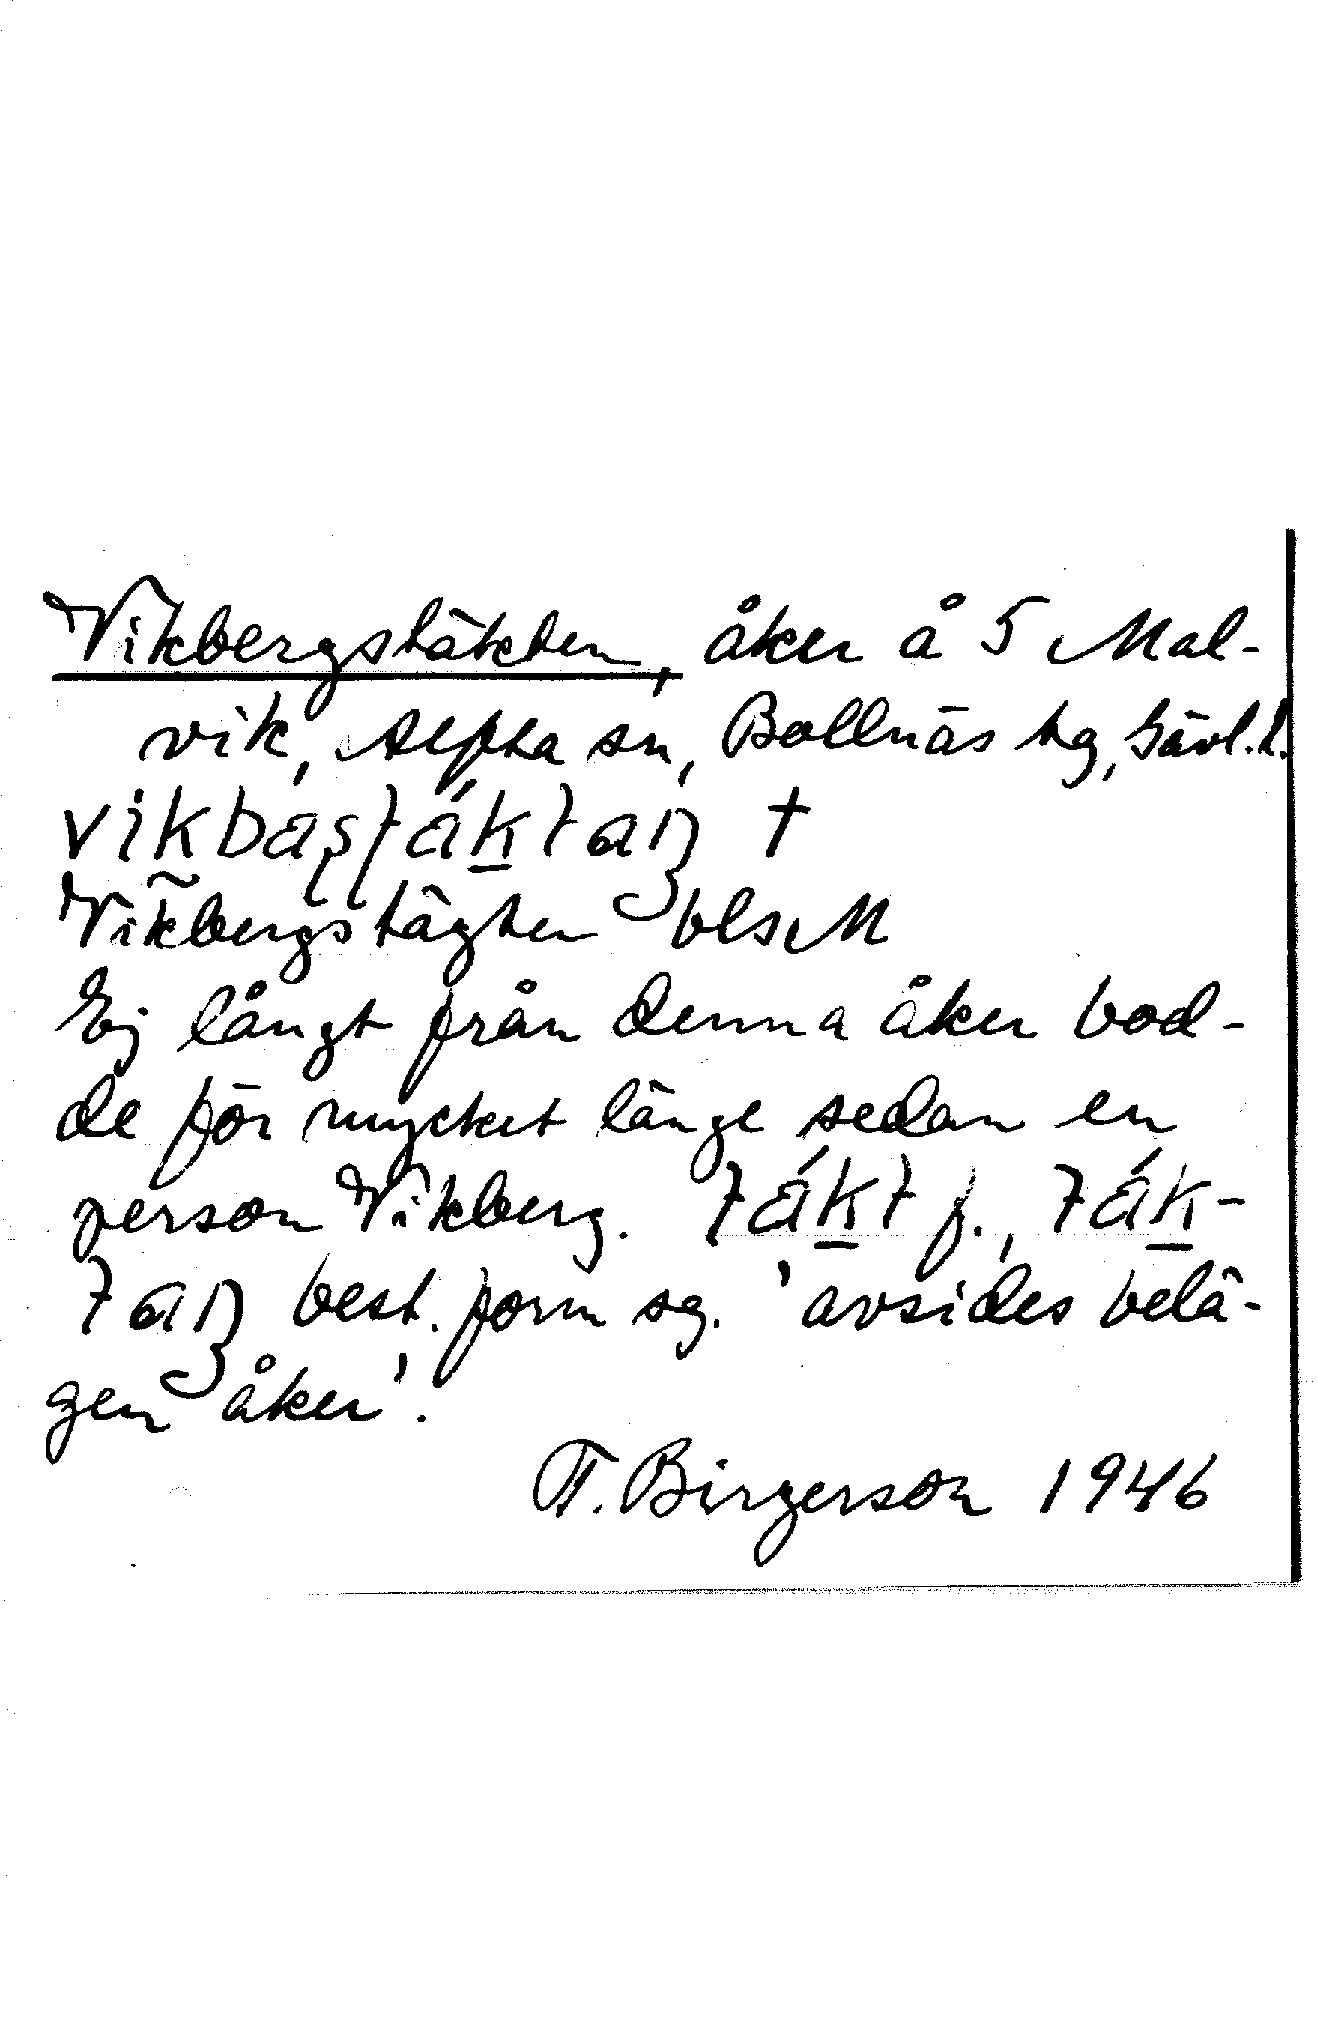 Vikbergstäkten, åker å 5 Mal-
vik, Alfta sn, Bollnäs tg, Gävl. l.
vikbaʂʈáktaɲ †
Vikbergstägten blsM
Ej långt från denna åker bod-
de för mycket länge sedan en
person Vikberg. tákt f., ták-
taɲ best. form sg. 'avsides belä-
gen åker'.
F. Birgerson 1946